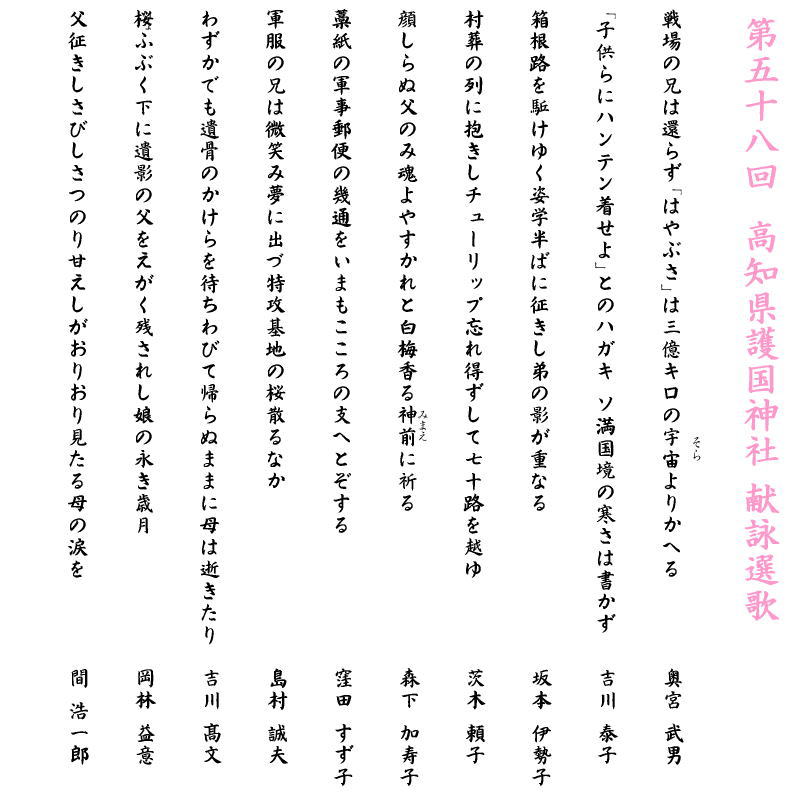 第五十八回　高知県護国神社 献詠選歌
戦場の兄は還らず「はやぶさ」は三億キロの宇宙よりかへる　奥宮 武男
そら
「子供らにハンテン着せよ」とのハガキ ソ満国境の寒さは書かず　吉川 泰子
箱根路を駈けゆく姿学半ばに征きし弟の影が重なる　坂本 伊勢子
村葬の列に抱きしチューリップ忘れ得ずして七十路を越ゆ　茨木 頼子
顔しらぬ父のみ魂よやすかれと白梅香る神前に祈る　森下 加寿子
みまえ
藁紙の軍事郵便の幾通をいまもこころの支へとぞする　窪田 すず子
軍服の兄は微笑み夢に出づ特攻基地の桜散るなか　島村 誠夫
わずかでも遺骨のかけらを待ちわびて帰らぬままに母は逝きたり　吉川 髙文
桜ふぶく下に遺影の父をえがく残されし娘の永き歳月　岡林 益意
父征きしさびしさつのり甘えしがおりおり見たる母の涙を　間 浩一郎